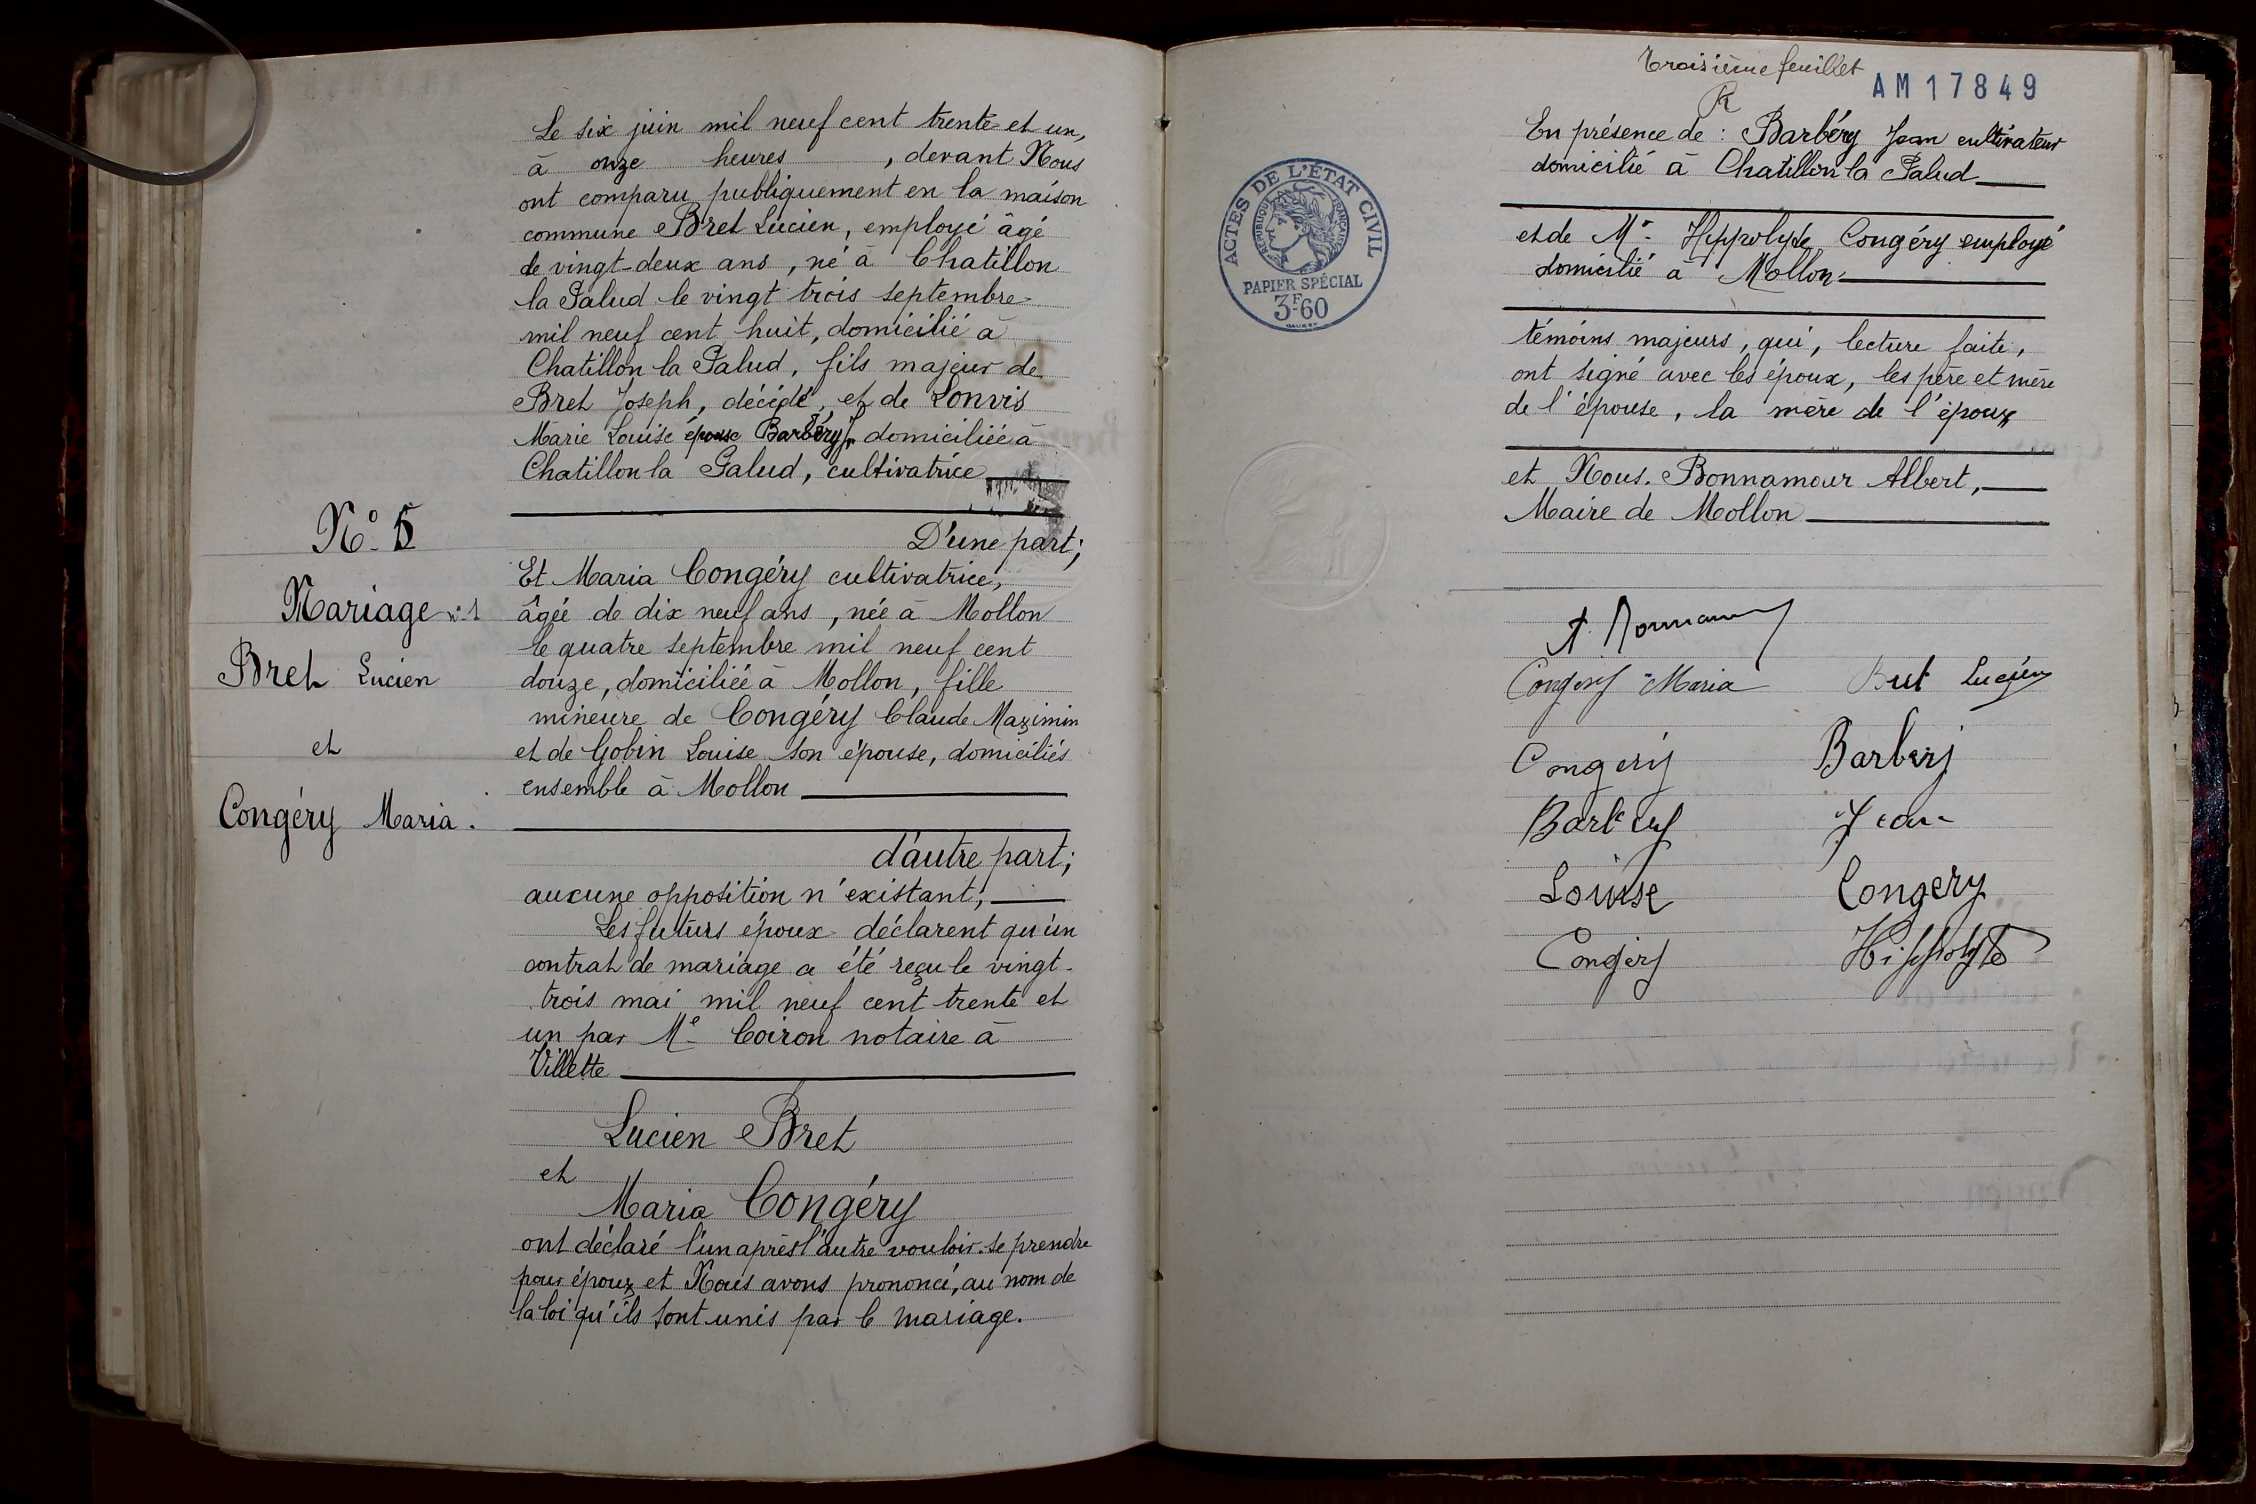 Le six juin mil neuf cent trente et un,
à onze heures , devant Nous
ont comparu publiquement en la maison
commune Bret Lucien, employé âgé
de vingt-deux ans, né à Chatillon
la Palud le vingt trois septembre
mil neuf cent huit, domicilié à
Chatillon la Palud, fils majeur de
Bret Joseph, décédé, et de Lonvis
Marie Louise épouse Barbéry, domiciliée à
Chatillon la Palud, cultivatrice
D'une part;
N° 5
Mariage n°1
Bret Lucien
et
Congéry Maria.
Et Maria Congéry cultivatrice,
âgée de dix neuf ans, née à Mollon
le quatre septembre mil neuf cent
douze, domiciliée à Mollon, fille
mineure de Congéry Claude Maximin
et de Gobin Louise son épouse, domiciliés
ensemble à Mollon
d'autre part;
aucune opposition n'existant;
Les futurs époux déclarent qu'un
contrat de mariage a été reçu le vingt-
trois mai mil neuf cent trente et
un par Me Coiron notaire à
Villette
Lucien Bret
et
Maria Congéry
ont déclaré l'un après l'autre vouloir se prendre
pour époux et Nous avons prononcé, au nom de
la loi qu'ils sont unis par le mariage.
Troisième feuillet
AM17849
R
En présence de : Barbéry Jean cultivateur
domicilié à Chatillon la Palud
et de Mr Hippolyte Congéry employé
domicilié à Mollon
témoins majeurs, qui, lecture faite,
ont signé avec les époux, les père et mère
de l'épouse, la mère de l'époux
et Nous. Bonnamour Albert,
Maire de Mollon
ACTES DE L'ÉTAT CIVIL
RÉPUBLIQUE FRANÇAISE
PAPIER SPÉCIAL
3F60
Congery Maria Bret Lucien
Congery Barbery
Barbery Jean
Louise Congery
Congery Hippolyte